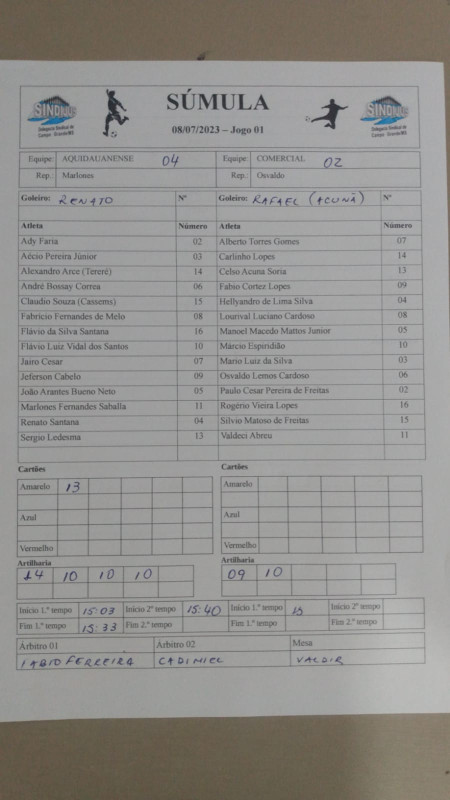 SÚMULA
08/07/2023 – Jogo 01
Delegacia Sindical de
Campo Grande/MS
Delegacia Sindical de
Campo Grande/MS
Equipe: AQUIDAUANENSE 04 Equipe: COMERCIAL 02
Rep.: Marlones Rep.: Osvaldo
Goleiro: RENATO Nº Goleiro: RAFAEL (ACUNÃ) Nº
Atleta Número Atleta Número
Ady Faria 02 Alberto Torres Gomes 07
Aécio Pereira Júnior 03 Carlinho Lopes 14
Alexandro Arce (Tereré) 14 Celso Acuna Soria 13
André Bossay Correa 06 Fabio Cortez Lopes 09
Claudio Souza (Cassems) 15 Hellyandro de Lima Silva 04
Fabricio Fernandes de Melo 08 Lourival Luciano Cardoso 08
Flávio da Silva Santana 16 Manoel Macedo Mattos Junior 05
Flávio Luiz Vidal dos Santos 10 Márcio Espiridião 10
Jairo Cesar 07 Mario Luiz da Silva 03
Jeferson Cabelo 09 Osvaldo Lemos Cardoso 06
João Arantes Bueno Neto 05 Paulo Cesar Pereira de Freitas 02
Marlones Fernandes Saballa 11 Rogério Vieira Lopes 16
Renato Santana 04 Silvio Matoso de Freitas 15
Sergio Ledesma 13 Valdeci Abreu 11
Cartões Cartões
Amarelo 13 Amarelo
Azul Azul
Vermelho Vermelho
Artilharia Artilharia
14 10 10 10 09 10
Início 1.º tempo 15:03 Início 2º tempo 15:40 Início 1.º tempo 15 Início 2º tempo
Fim 1.º tempo 15:33 Fim 2.º tempo Fim 1.º tempo Fim 2.º tempo
Árbitro 01 Árbitro 02 Mesa
FABIO FERREIRA CADIMIEL VALDIR